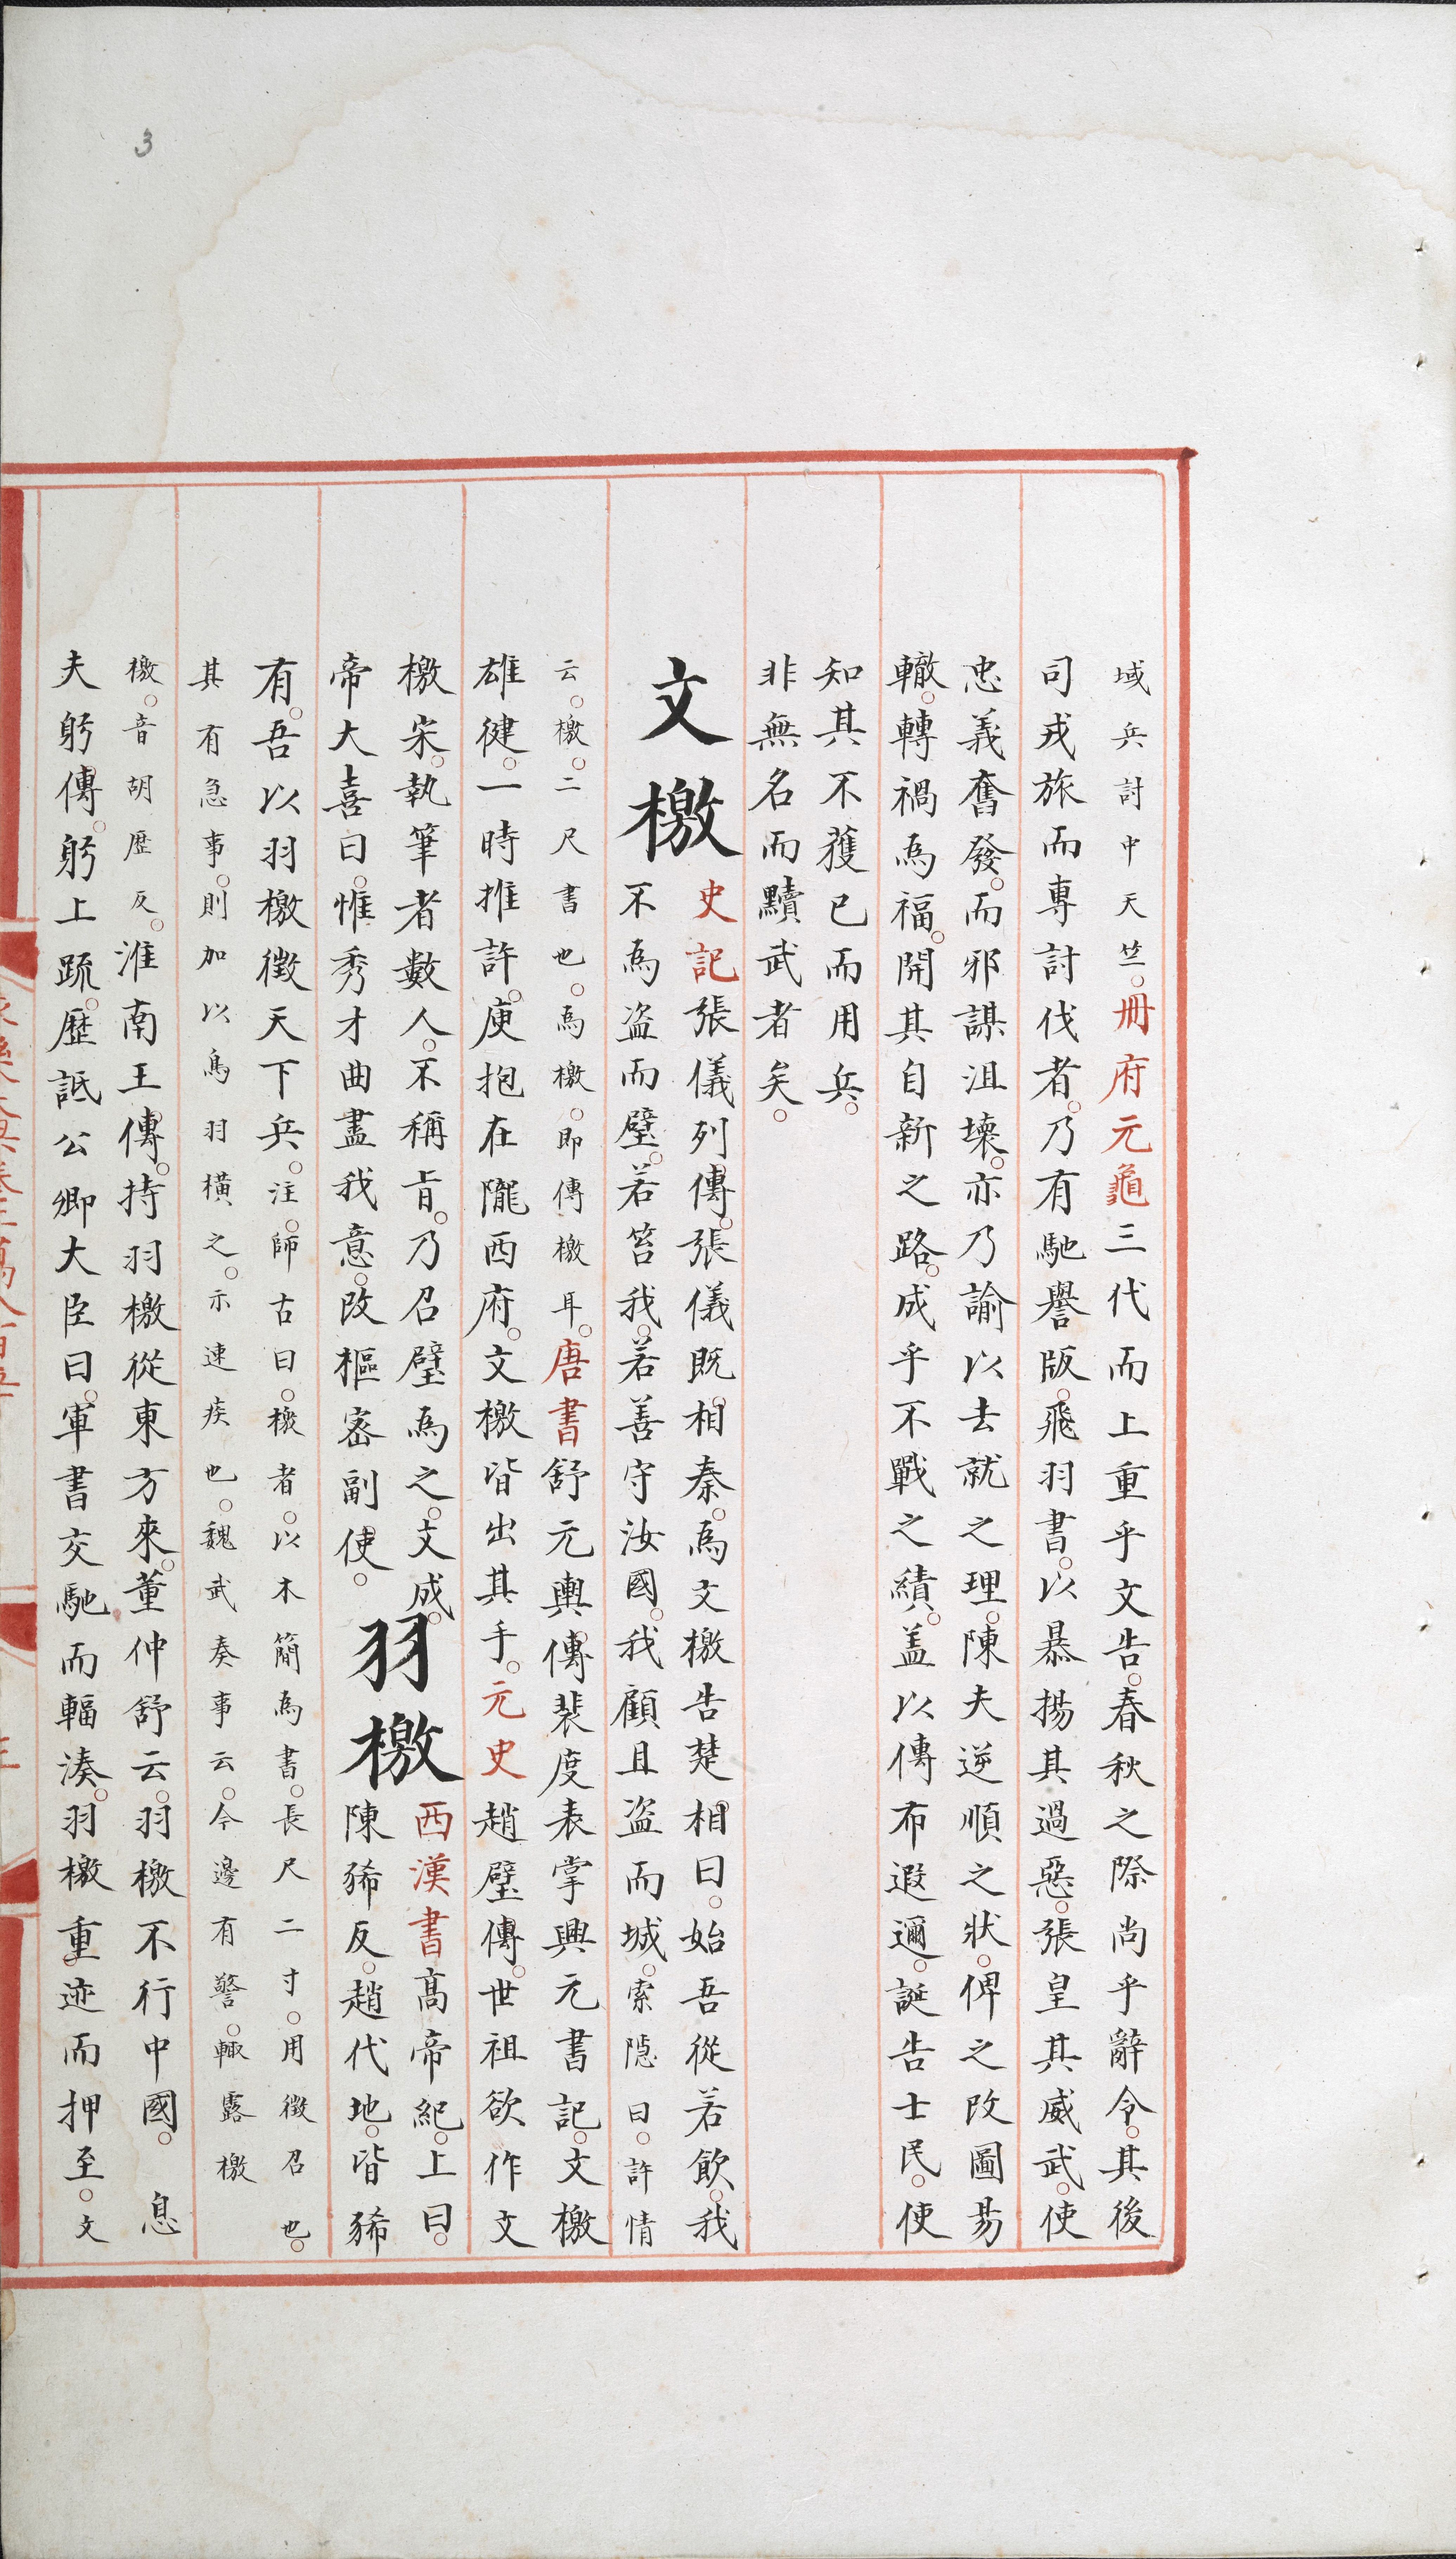 3
域兵討中天竺。冊府元龜三代而上重乎文告。春秋之際尚乎辭令。其後
司戎旅而專討伐者。乃有馳譽版。飛羽書。以暴揚其過惡。張皇其威武。使
忠義奮發。而邪謀沮壞。亦乃諭以去就之理。陳夫逆順之狀。俾之改圖易
轍。轉禍為福。開其自新之路。成乎不戰之績。蓋以傳布遐邇。誕告士民。使
知其不獲已而用兵。
非無名而黷武者矣。
文檄
史記張儀列傳。張儀既相秦。為文檄告楚相曰。始吾從若飲。我
不為盜而璧。若笞我。若善守汝國。我顧且盜而城。索隱曰。許情
云。檄。二尺書也。為檄。即傳檄耳。唐書舒元輿傳裴度表掌興元書記。文檄
雄健。一時推許。庾抱在隴西府。文檄皆出其手。元史趙璧傳。世祖欲作文
檄宋。執筆者數人。不稱旨。乃召璧為之。文成。
帝大喜曰。惟秀才曲盡我意。改樞密副使。
羽檄
西漢書高帝紀。上曰。
陳豨反。趙代地。皆豨
有。吾以羽檄徵天下兵。注。師古曰。檄者。以木簡為書。長尺二寸。用徵召也。
其有急事。則加以鳥羽橫之。示速疾也。魏武奏事云。今邊有警。輒露檄
檄。音胡歷反。淮南王傳。持羽檄從東方來。董仲舒云。羽檄不行中國。 息
夫躬傳。躬上疏。歷詆公卿大臣曰。軍書交馳而輻湊。羽檄重迹而押至。文